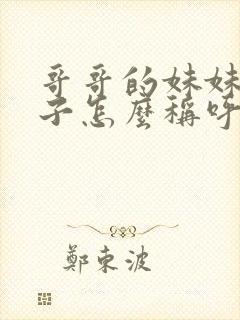 哥哥的妹妹
子怎麼稱呼
鄭東波